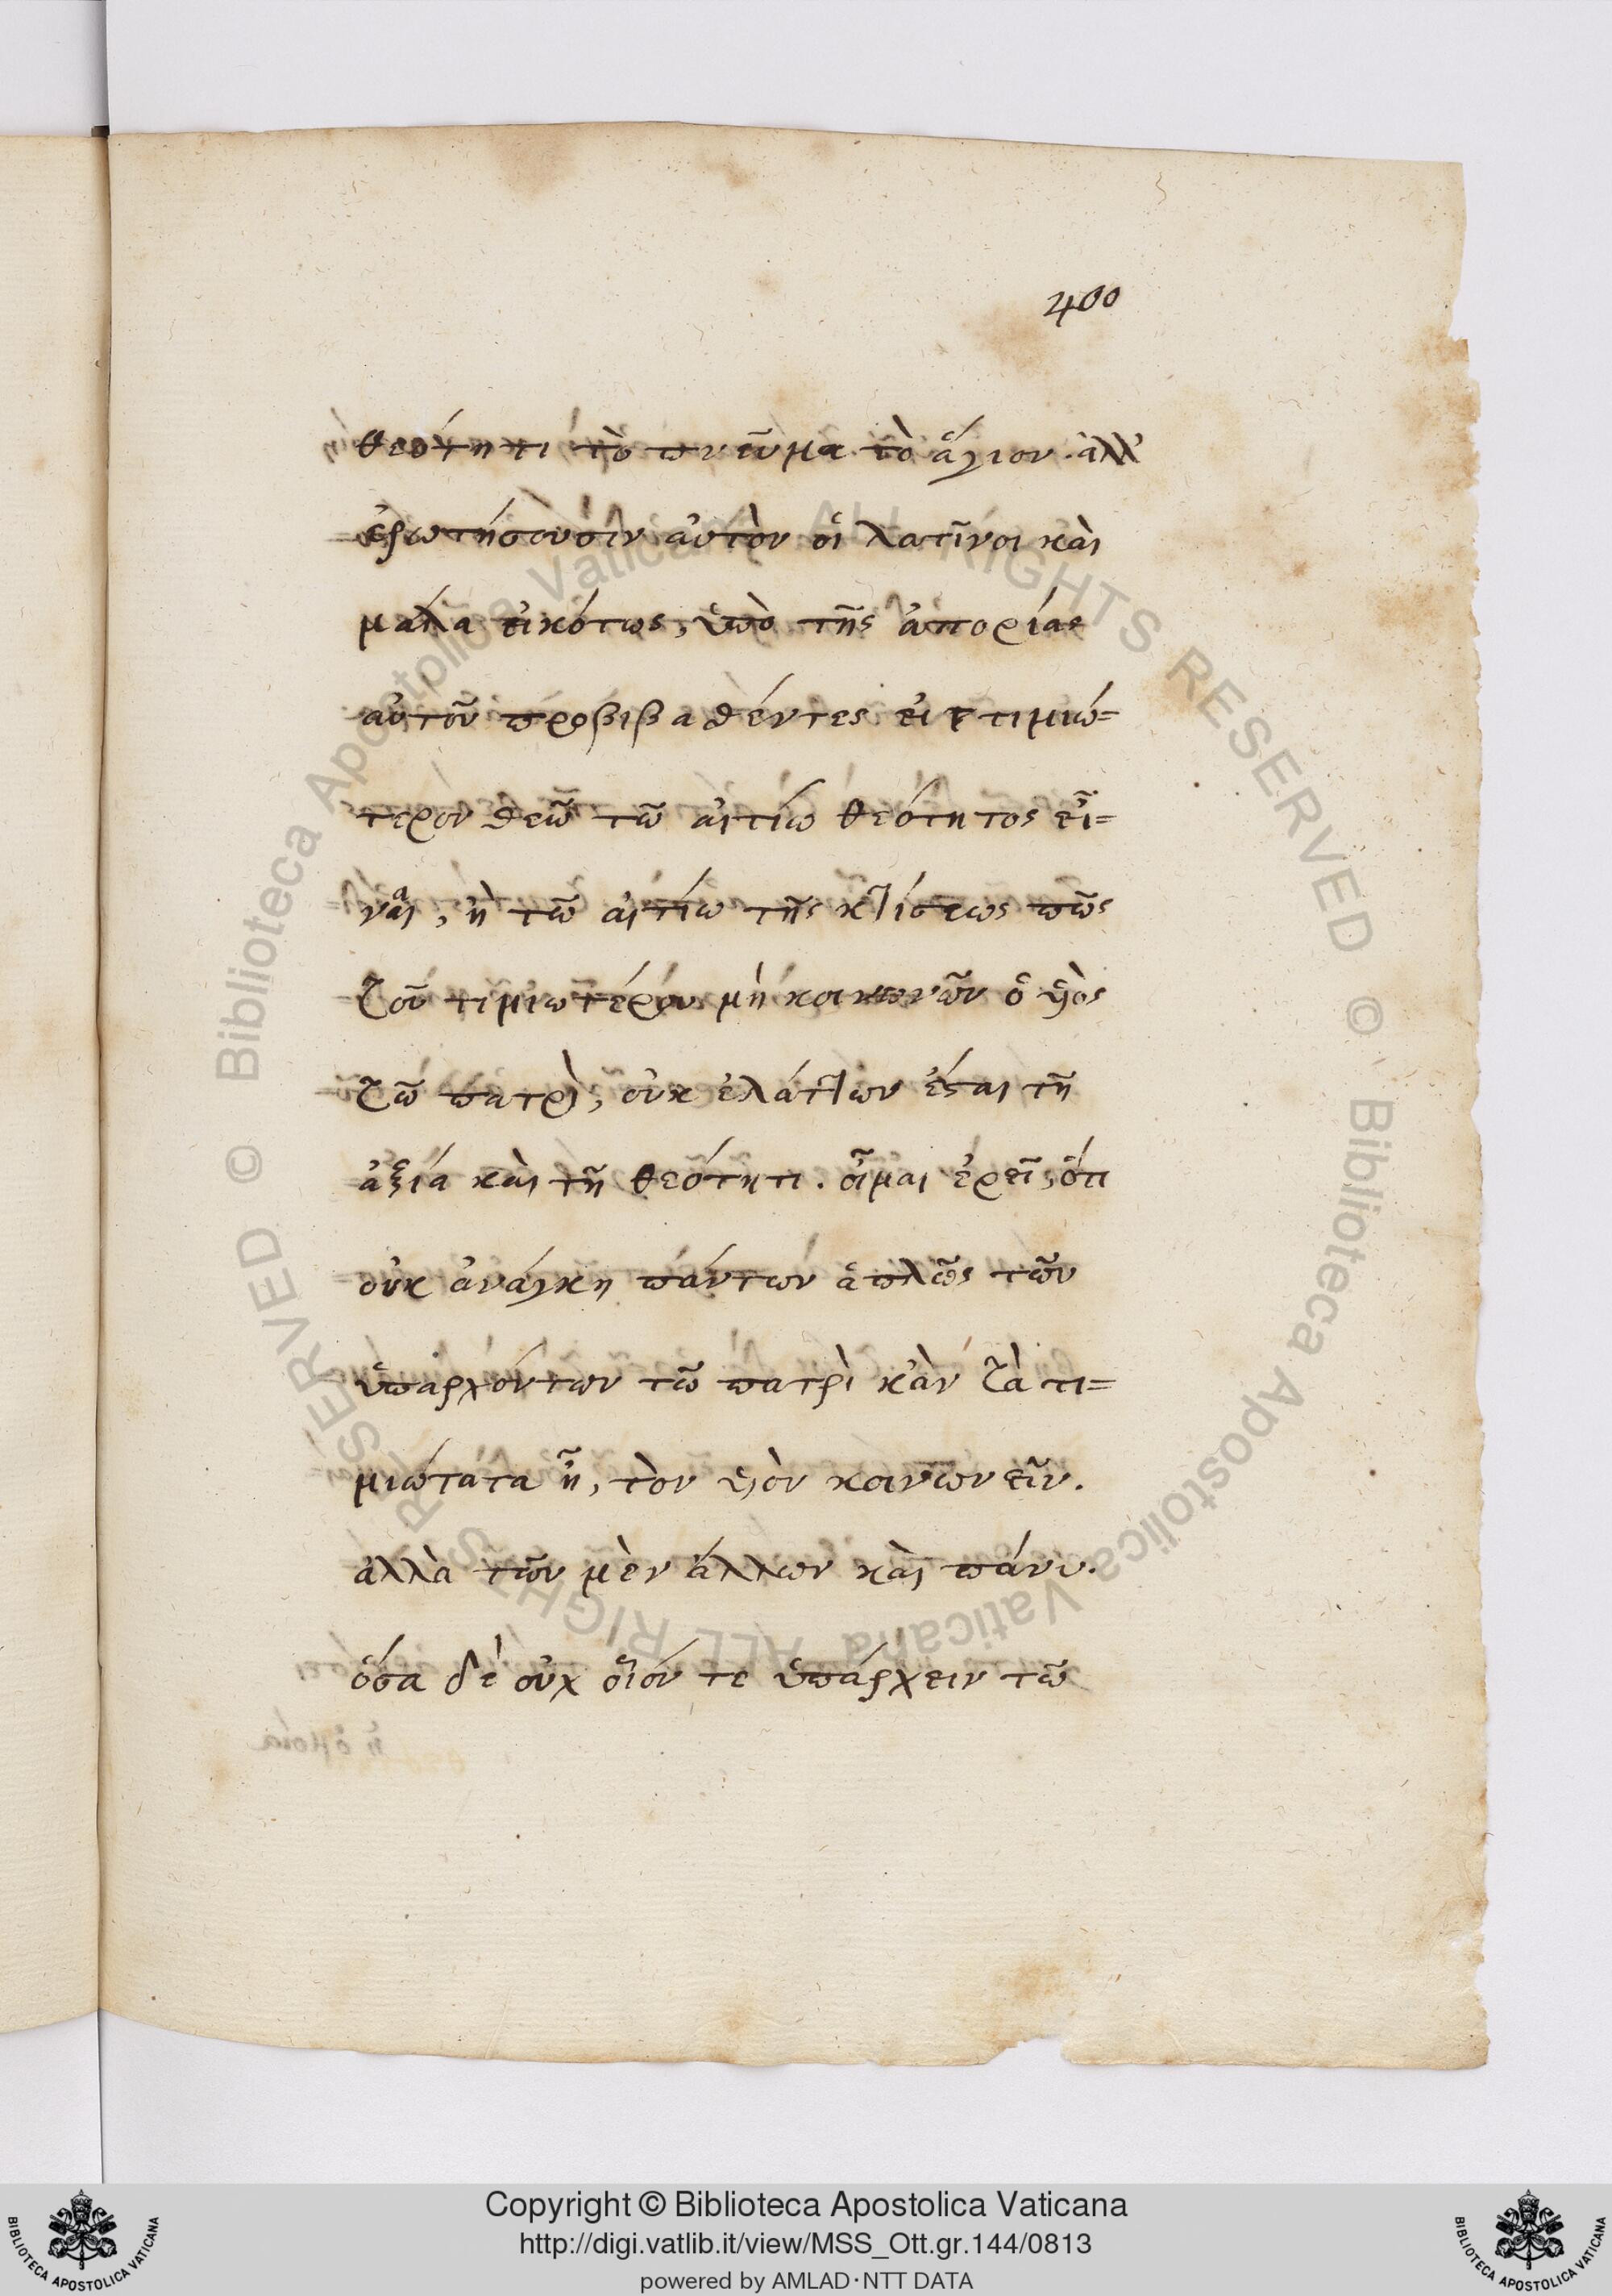 400
θεότητι τὸ πνεῦμα τὸ ἅγιον. ἀλλ'
ἐρωτήσουσιν αὐτὸν οἱ λατῖνοι καὶ
μάλα εἰκότως, ὑπὸ τῆς ἀπορίας
αὐτοῦ προβιβαθέντες εἰ τιμιώ=
τερον θεῶ τῶ αἰτίω θεότητος εἶ=
ναι, ἢ τῶ αἰτίω τῆς κτίσεως πῶς
τοῦ τιμιωτέρου μὴ κοινωνῶν ὁ υἱὸς
τῶ πατρὶ, οὐκ ἐλάττων ἔσται τῆ
ἀξία καὶ τῆ θεότητι. οἶμαι ἐρεῖ, ὅτι
οὐκ ἀνάγκη πάντων ἁπλῶς τῶν
ὑπαρχόντων τῶ πατρὶ κἂν τὰ τι=
μιώτατα ἦ, τὸν υἱὸν κοινωνεῖν.
ἀλλὰ τῶν μὲν ἄλλων καὶ πάνυ.
ὅσα δὲ οὐχ οἷόν τε ὑπάρχειν τῶ
Copyright © Biblioteca Apostolica Vaticana
http://digi.vatlib.it/view/MSS_Ott.gr.144/0813
powered by AMLAD·NTT DATA
BIBLIOTECA APOSTOLICA VATICANA
BIBLIOTECA APOSTOLICA VATICANA
© Biblioteca Apostolica Vaticana ALL RIGHTS RESERVED
© Biblioteca Apostolica Vaticana ALL RIGHTS RESERVED